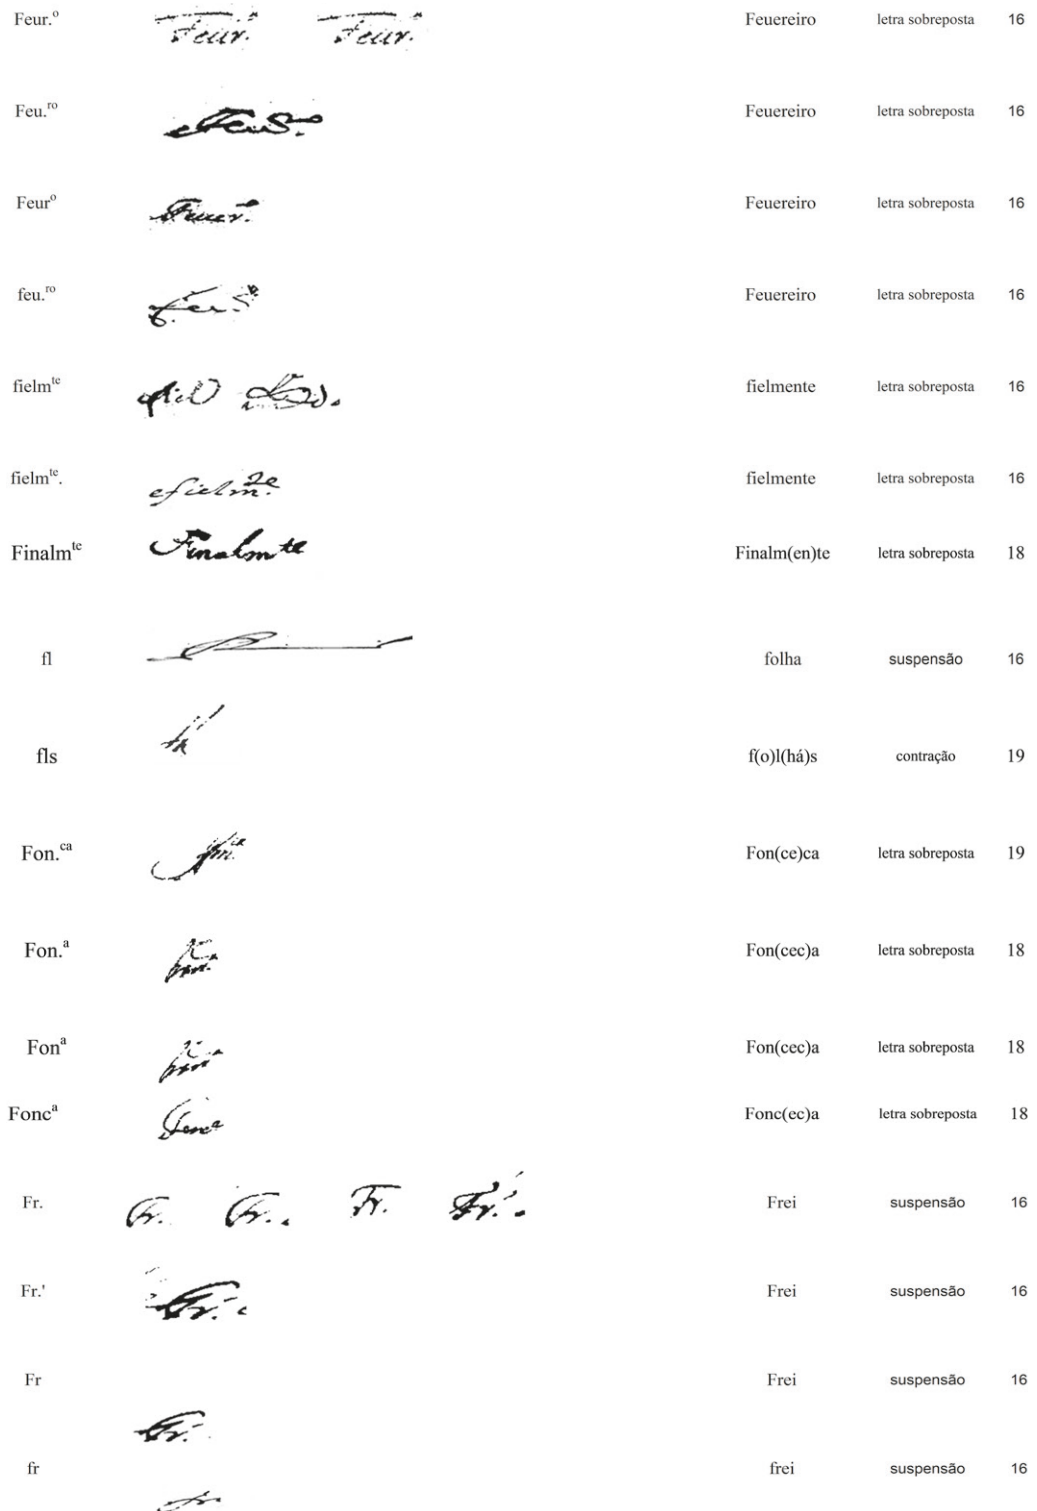 Feur.º Feur. Feur. Feuereiro letra sobreposta 16
Feu.ʳᵒ Feuereiro letra sobreposta 16
Feurº Feuereiro letra sobreposta 16
feu.ʳᵒ Feuereiro letra sobreposta 16
fielmᵗᵉ fiel fielmente letra sobreposta 16
fielmᵗᵉ. efielm.ᵗᵉ fielmente letra sobreposta 16
Finalmᵗᵉ Finalmᵗᵉ Finalm(en)te letra sobreposta 18
fl folha suspensão 16
fls f(o)l(há)s contração 19
Fon.ᶜᵃ Fon(ce)ca letra sobreposta 19
Fon.ᵃ Fon(cec)a letra sobreposta 18
Fonᵃ Fon(cec)a letra sobreposta 18
Foncᵃ Foncᵃ Fonc(ec)a letra sobreposta 18
Fr. Fr. Fr. Fr. Fr. Frei suspensão 16
Fr.' Fr. Frei suspensão 16
Fr Fr. Frei suspensão 16
fr frei suspensão 16